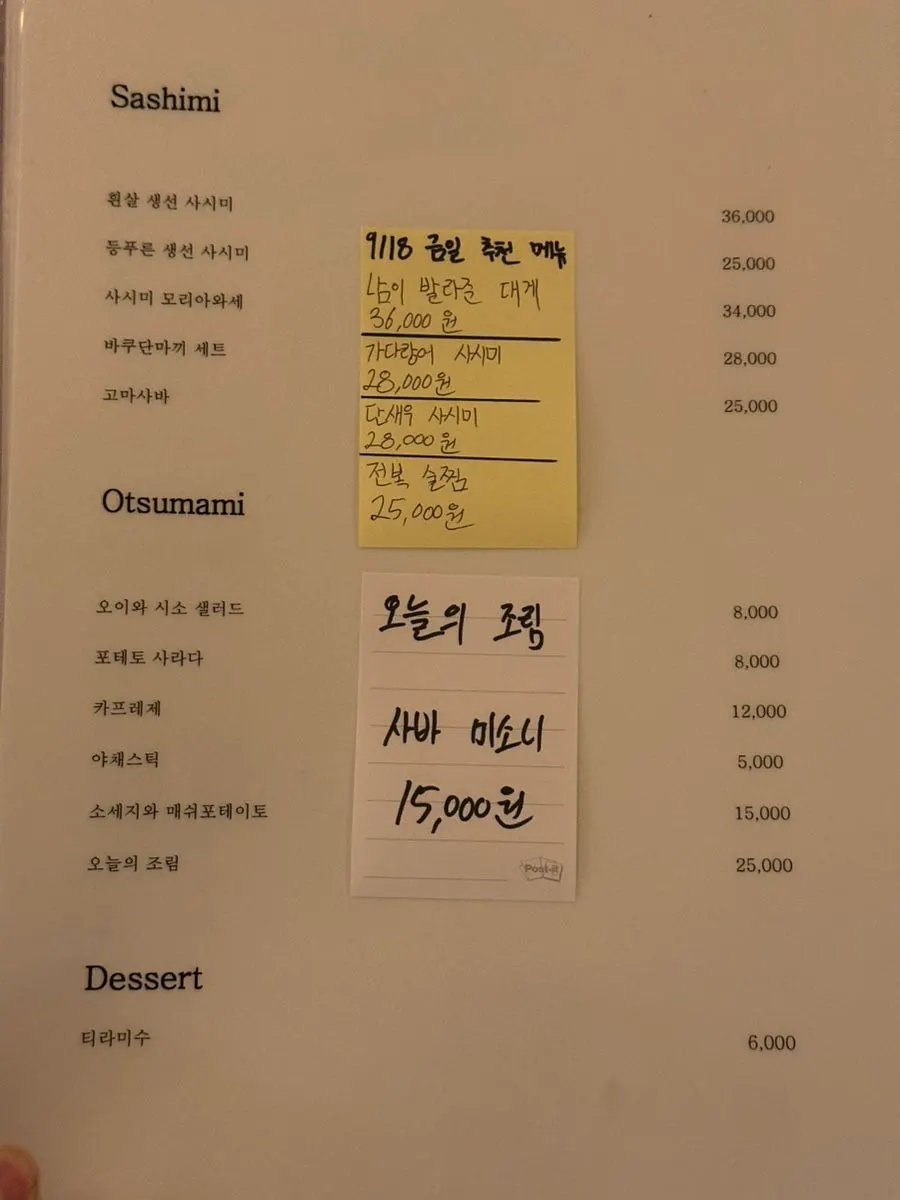 Sashimi
흰살 생선 사시미 36,000
등푸른 생선 사시미 25,000
사시미 모리아와세 34,000
바쿠단마끼 세트 28,000
고마사바 25,000
9/18 금일 추천 메뉴
남이 발라준 대게
36,000원
가다랑어 사시미
28,000원
단새우 사시미
28,000원
전복 술찜
25,000원
Otsumami
오이와 시소 샐러드 8,000
포테토 사라다 8,000
카프레제 12,000
야채스틱 5,000
소세지와 매쉬포테이토 15,000
오늘의 조림 25,000
오늘의 조림
사바 미소니
15,000원
Post-it
Dessert
티라미수 6,000